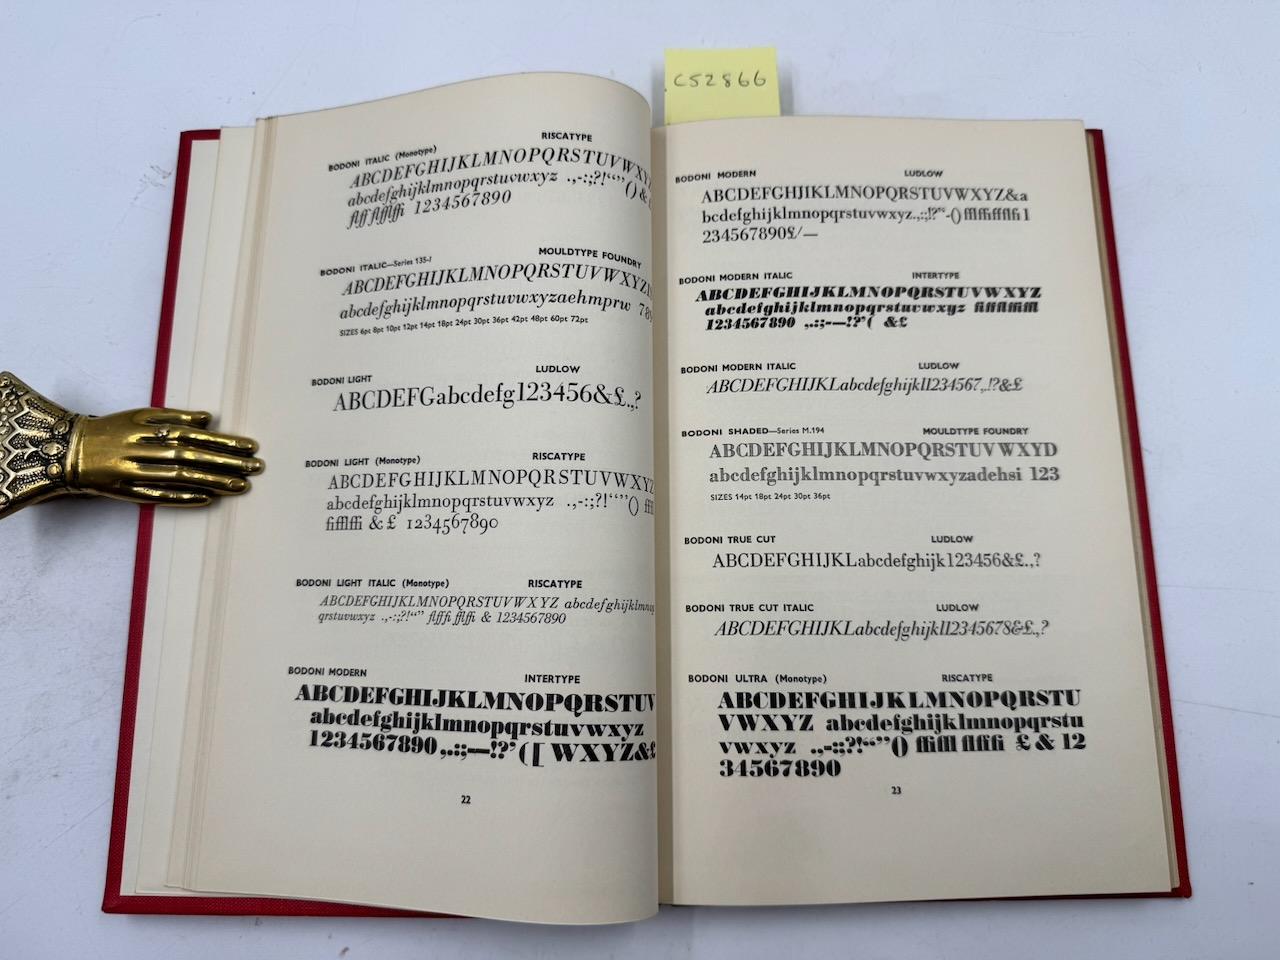 C52866
RISCATYPE
BODONI ITALIC (Monotype)
ABCDEFGHIJKLMNOPQRSTUVWXY
abcdefghijklmnopqrstuvwxyz .,-:;?!“”() &
1234567890
MOULDTYPE FOUNDRY
BODONI ITALIC—Series 135-1
ABCDEFGHIJKLMNOPQRSTUVWXYZ
abcdefghijklmnopqrstuvwxyzaehmprw 78
SIZES 6pt 8pt 10pt 12pt 14pt 18pt 24pt 30pt 36pt 42pt 48pt 60pt 72pt
BODONI LIGHT LUDLOW
ABCDEFGabcdefg123456&£.,?
BODONI LIGHT (Monotype) RISCATYPE
ABCDEFGHIJKLMNOPQRSTUVWXYZ
abcdefghijklmnopqrstuvwxyz .,-:;?!“”()
fiffflffi & £ 1234567890
BODONI LIGHT ITALIC (Monotype) RISCATYPE
ABCDEFGHIJKLMNOPQRSTUVWXYZ abcdefghijklmnop
qrstuvwxyz .,-:;?!“” & 1234567890
BODONI MODERN INTERTYPE
ABCDEFGHIJKLMNOPQRSTUV
abcdefghijklmnopqrstuvwxyz
1234567890 ,.:;—!?’([ WXYZ&£
22
BODONI MODERN LUDLOW
ABCDEFGHIJIKLMNOPQRSTUVWXYZ&a
bcdefghijklmnopqrstuvwxyz.,:;!?“-() 1
234567890£/—
BODONI MODERN ITALIC INTERTYPE
ABCDEFGHIJKLMNOPQRSTUVWXYZ
abcdefghijklmnopqrstuvwxyz
1234567890 ,.:;-—!?’( &£
BODONI MODERN ITALIC LUDLOW
ABCDEFGHIJKLabcdefghijkl1234567,.!?&£
BODONI SHADED—Series M.194 MOULDTYPE FOUNDRY
ABCDEFGHIJKLMNOPQRSTUVWXYD
abcdefghijklmnopqrstuvwxyzadehsi 123
SIZES 14pt 18pt 24pt 30pt 36pt
BODONI TRUE CUT LUDLOW
ABCDEFGHIJKLabcdefghijk123456&£.,?
BODONI TRUE CUT ITALIC LUDLOW
ABCDEFGHIJKLabcdefghijkl12345678&£.,?
BODONI ULTRA (Monotype) RISCATYPE
ABCDEFGHIJKLMNOPQRSTU
VWXYZ abcdefghijklmnopqrstu
vwxyz .,-:;?!“”() £ & 12
34567890
23